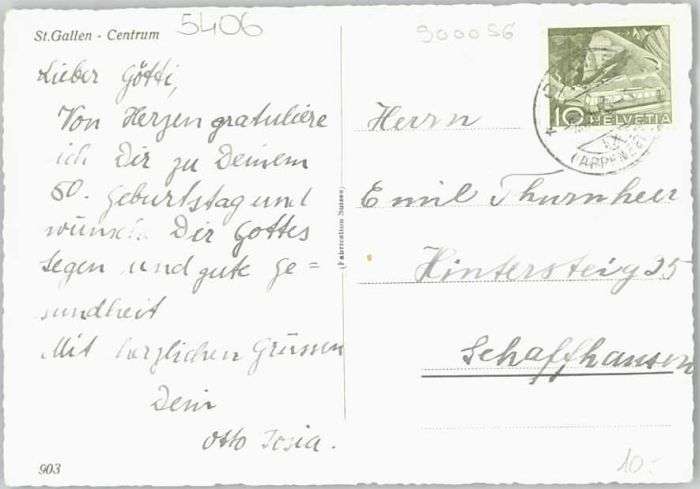 5406
900056
St.Gallen - Centrum
Lieber Götti,
Von Herzen gratuliere
ich Dir zu Deinem
80. Geburtstag und
wünsch Dir Gottes
Segen und gute Ge=
sundheit
Mit herzlichen Grüssen
Dein
Otto
903
(Fabrication Suisse)
10 HELVETIA
(APPENZELL
Herrn
Emil Thurnheer
Hintersteig 25
Schaffhausen
10.-